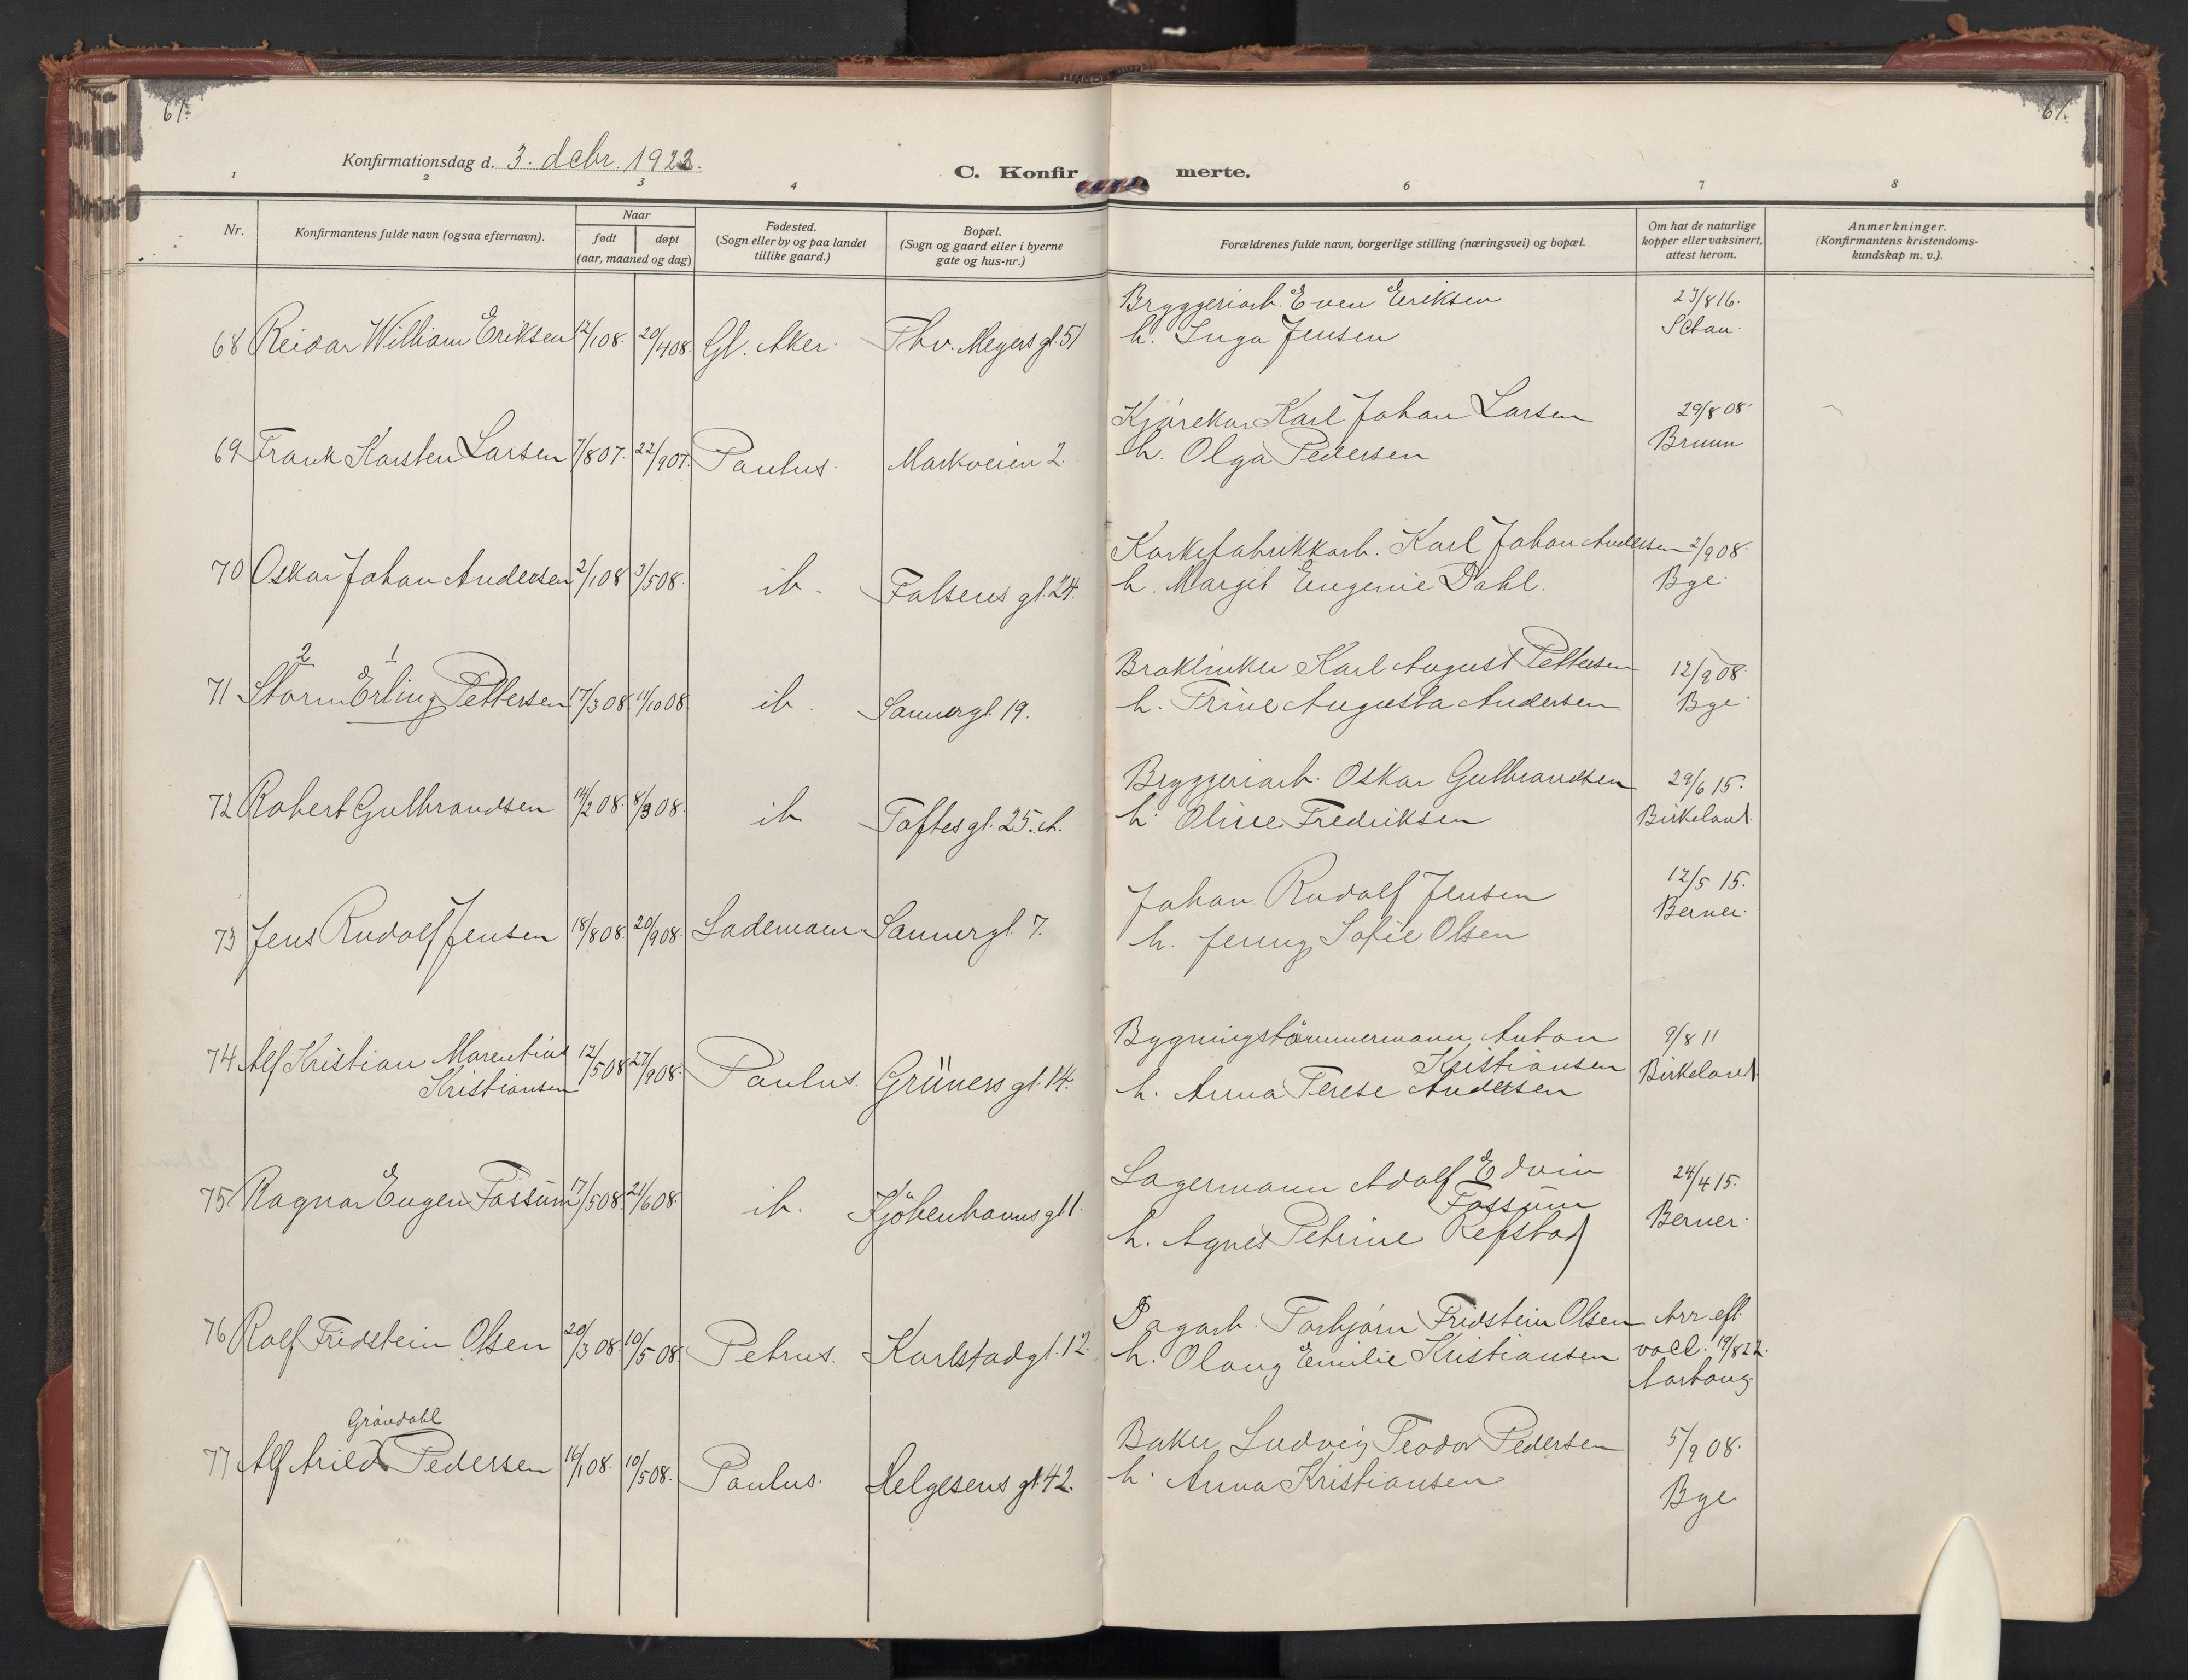 61.
61.
Konfirmationsdag d. 3. debr. 1922.
C. Konfirmerte.
1 2 3 4 6 7 8
Nr.
Konfirmantens fulde navn (ogsaa efternavn).
Naar
født døpt
(aar, maaned og dag)
Fødested.
(Sogn eller by og paa landet
tillike gaard.)
Bopæl.
(Sogn og gaard eller i byerne
gate og hus-nr.)
Forældrenes fulde navn, borgerlige stilling (næringsvei) og bopæl.
Om hat de naturlige
kopper eller vaksinert,
attest herom.
Anmerkninger.
(Konfirmantens kristendoms-
kundskap m. v.).
68 Reidar William Eriksen 12/1 08. 20/4 08. Gl. Aker. Thv. Meyers gt. 51
Bryggeriarb. Even Eriksen
h. Inga Jensen
23/8 16.
Schau.
69 Frank Karsten Larsen 7/8 07. 22/9 07. Paulus. Markveien 2.
Kjørekar Karl Johan Larsen
h. Olga Pedersen
29/8 08.
Bruun
70 Oskar Johan Andersen 2/1 08 3/5 08. ib. Falsens gt. 24.
Korkefabrikkarb. Karl Johan Andersen
h. Margit Eugenie Dahl.
2/9 08.
Bge.
2 1
71 Storm Erling Pettersen 17/3 08. 11/10 08 ib. Sannergt. 19.
Karl August Pettersen
h. Trine Augusta Andersen
12/9 08.
Bge
72 Robert Gulbrandsen 14/2 08. 8/3 08. ib Toftes gt. 25. A.
Bryggeriarb. Oskar Gulbrandsen
h. Oline Fredriksen
29/6 15.
Birkeland.
73 Jens Rudolf Jensen 18/8 08. 20/9 08. Lademoen. Sannergt. 7.
Johan Rudolf Jensen
h. Jenny Sofie Olsen
12/5 15.
Berner.
74 Alf Kristian Marentius 12/5 08 27/9 08. Paulus. Grüners gt. 14.
Kristiansen
Bygningstømmermann Anton
Kristiansen
h. Anna Terese Andersen
9/8 11
Birkeland
75 Ragnar Eugen Fossum 17/5 08. 21/6 08. ib. Kjøbenhavnsgt 1.
Lagermann Adolf Edvin
Fossum
h. Agnes Petrine Refstad
24/4 15.
Berner.
76 Rolf Fridstein Olsen 20/3 08. 10/5 08. Petrus. Karlstadgt. 12.
Dagarb. Torbjørn Fridstein Olsen
h. Olaug Emilie Kristiansen
Arr. eft.
vacc. 19/8 22.
Grøndahl
77 Alf Arild Pedersen 16/1 08. 10/5 08. Paulus. Helgesens gt. 42.
Baker Ludvig Teodor Pedersen
h. Anna Kristiansen
5/9 08.
Bge